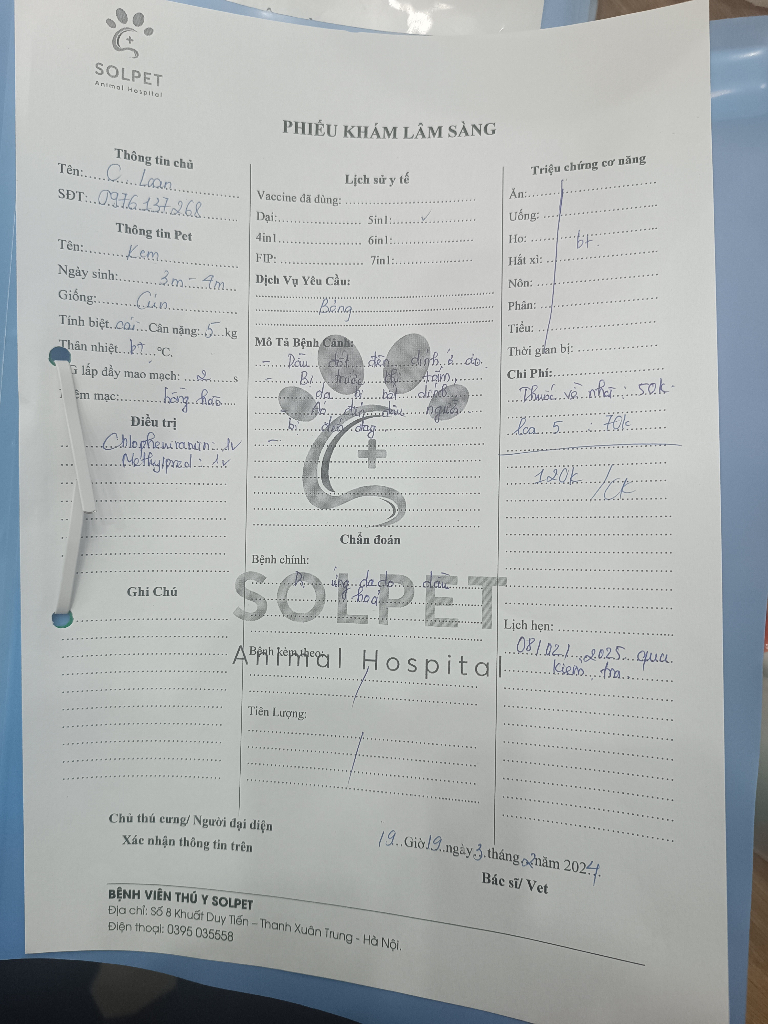 SOLPET
Animal Hospital
PHIẾU KHÁM LÂM SÀNG
Thông tin chủ
Tên: C. Loan
SĐT: 0976.137.268
Thông tin Pet
Tên: Kem
Ngày sinh: 3m - 4m
Giống: Cún
Tính biệt: cái Cân nặng: 5 kg
Thân nhiệt: bt °C.
lấp đầy mao mạch: 2 s
mạc: hồng hào
Điều trị
Chlopheniramin: 1v
Methylpred: 1v
Ghi Chú
Lịch sử y tế
Vaccine đã dùng:
Dại: 5in1: ✓
4in1 6in1:
FIP: 7in1:
Dịch Vụ Yêu Cầu:
Mô Tả Bệnh Cảnh:
- Dầu đốt đèn dính
- Bị trước khi
da bị
bị
-
Chẩn đoán
Bệnh chính:
Dị ứng da do dầu
hoả
SOLPET
Animal Hospital
Bệnh kèm theo:
Tiên Lượng:
Triệu chứng cơ năng
Ăn:
Uống:
Ho: bt
Hắt xì:
Nôn:
Phân:
Tiểu:
Thời gian bị:
Chi Phí:
Thuốc về nhà: 50k
loa 5 : 70k
120k / CK
Lịch hẹn:
08/02/2025 qua
kiểm tra
Chủ thú cưng/ Người đại diện
Xác nhận thông tin trên
19 Giờ 19 ngày 3 tháng 2 năm 2024
Bác sĩ/ Vet
BỆNH VIÊN THÚ Y SOLPET
Địa chỉ: Số 8 Khuất Duy Tiến – Thanh Xuân Trung - Hà Nội.
Điện thoại: 0395 035558